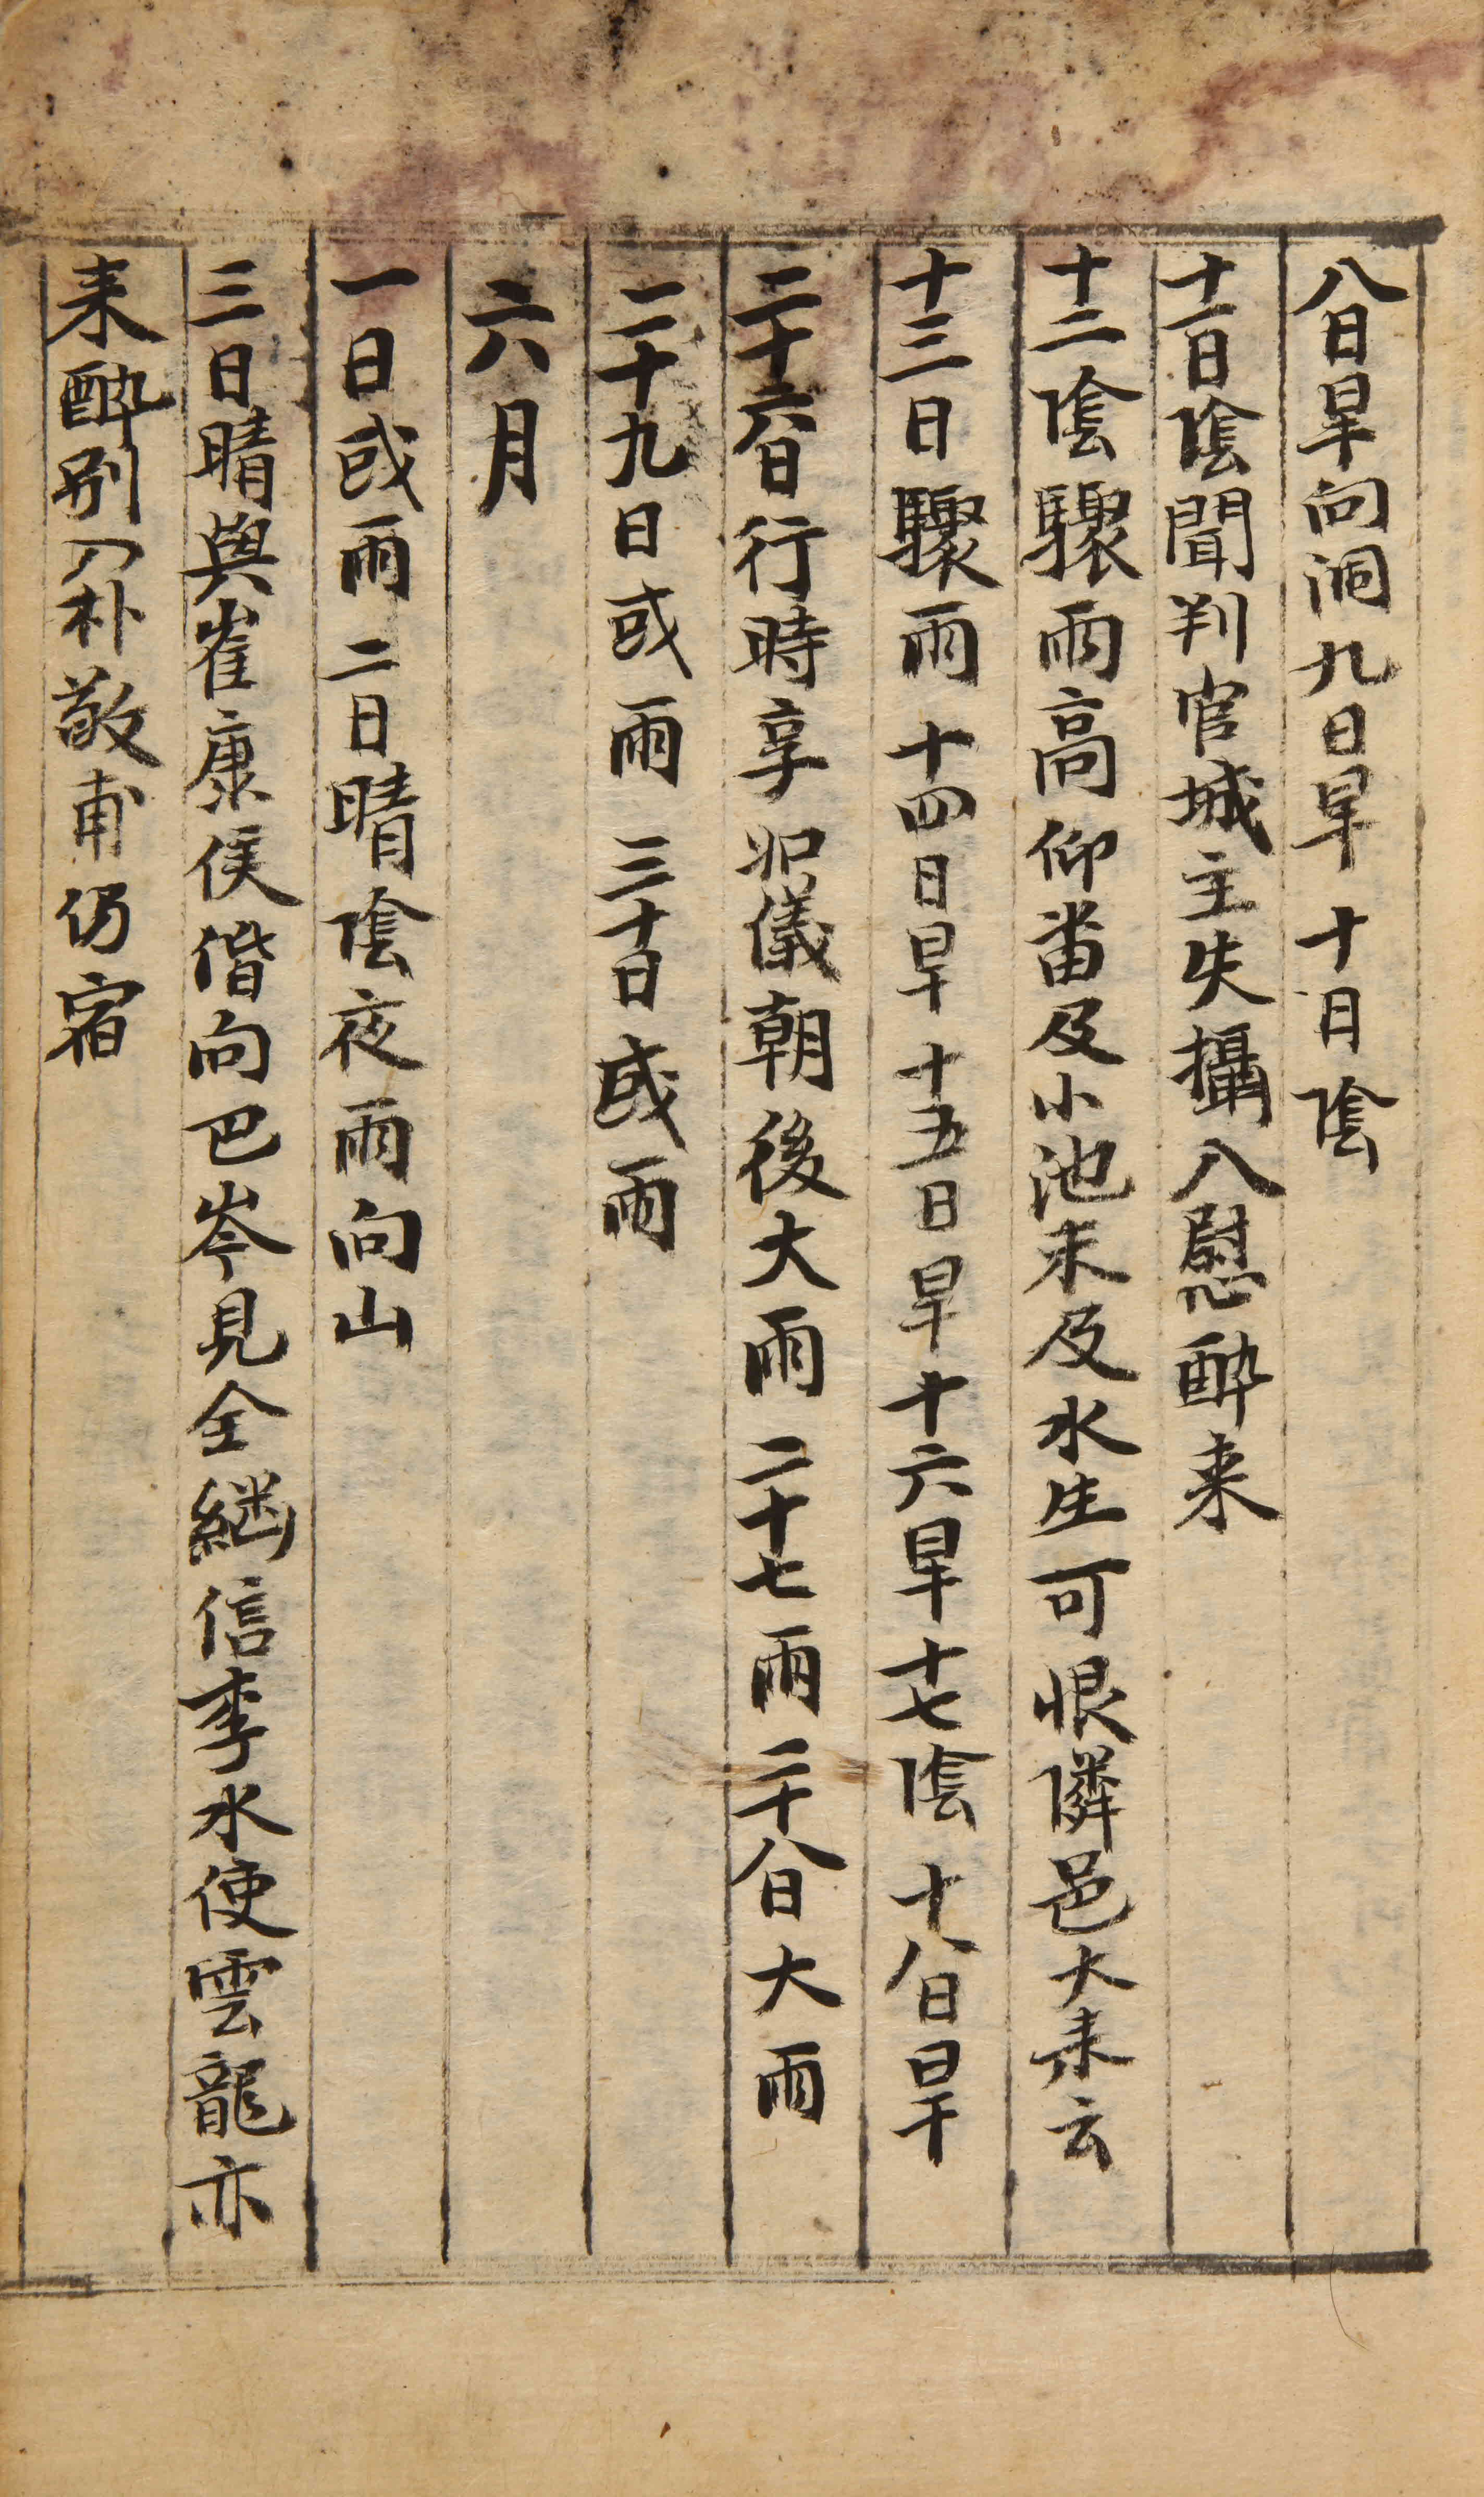 八日旱向洞九日旱 十日陰
十一日陰聞判官城主失攝入慰醉来
十二陰驟雨高仰畓及小池未及水生可恨隣邑大来云
十三日驟雨 十四日旱十五日旱十六旱十七陰 十八日旱
二十六日行時享如儀朝後大雨 二十七雨二十八日大雨
二十九日或雨 三十日或雨
六月
一日或雨 二日晴陰夜雨向山
三日晴與崔康侯偕向巴岑見全繼信李水使雲龍亦
来醉别入朴敬甫仍宿